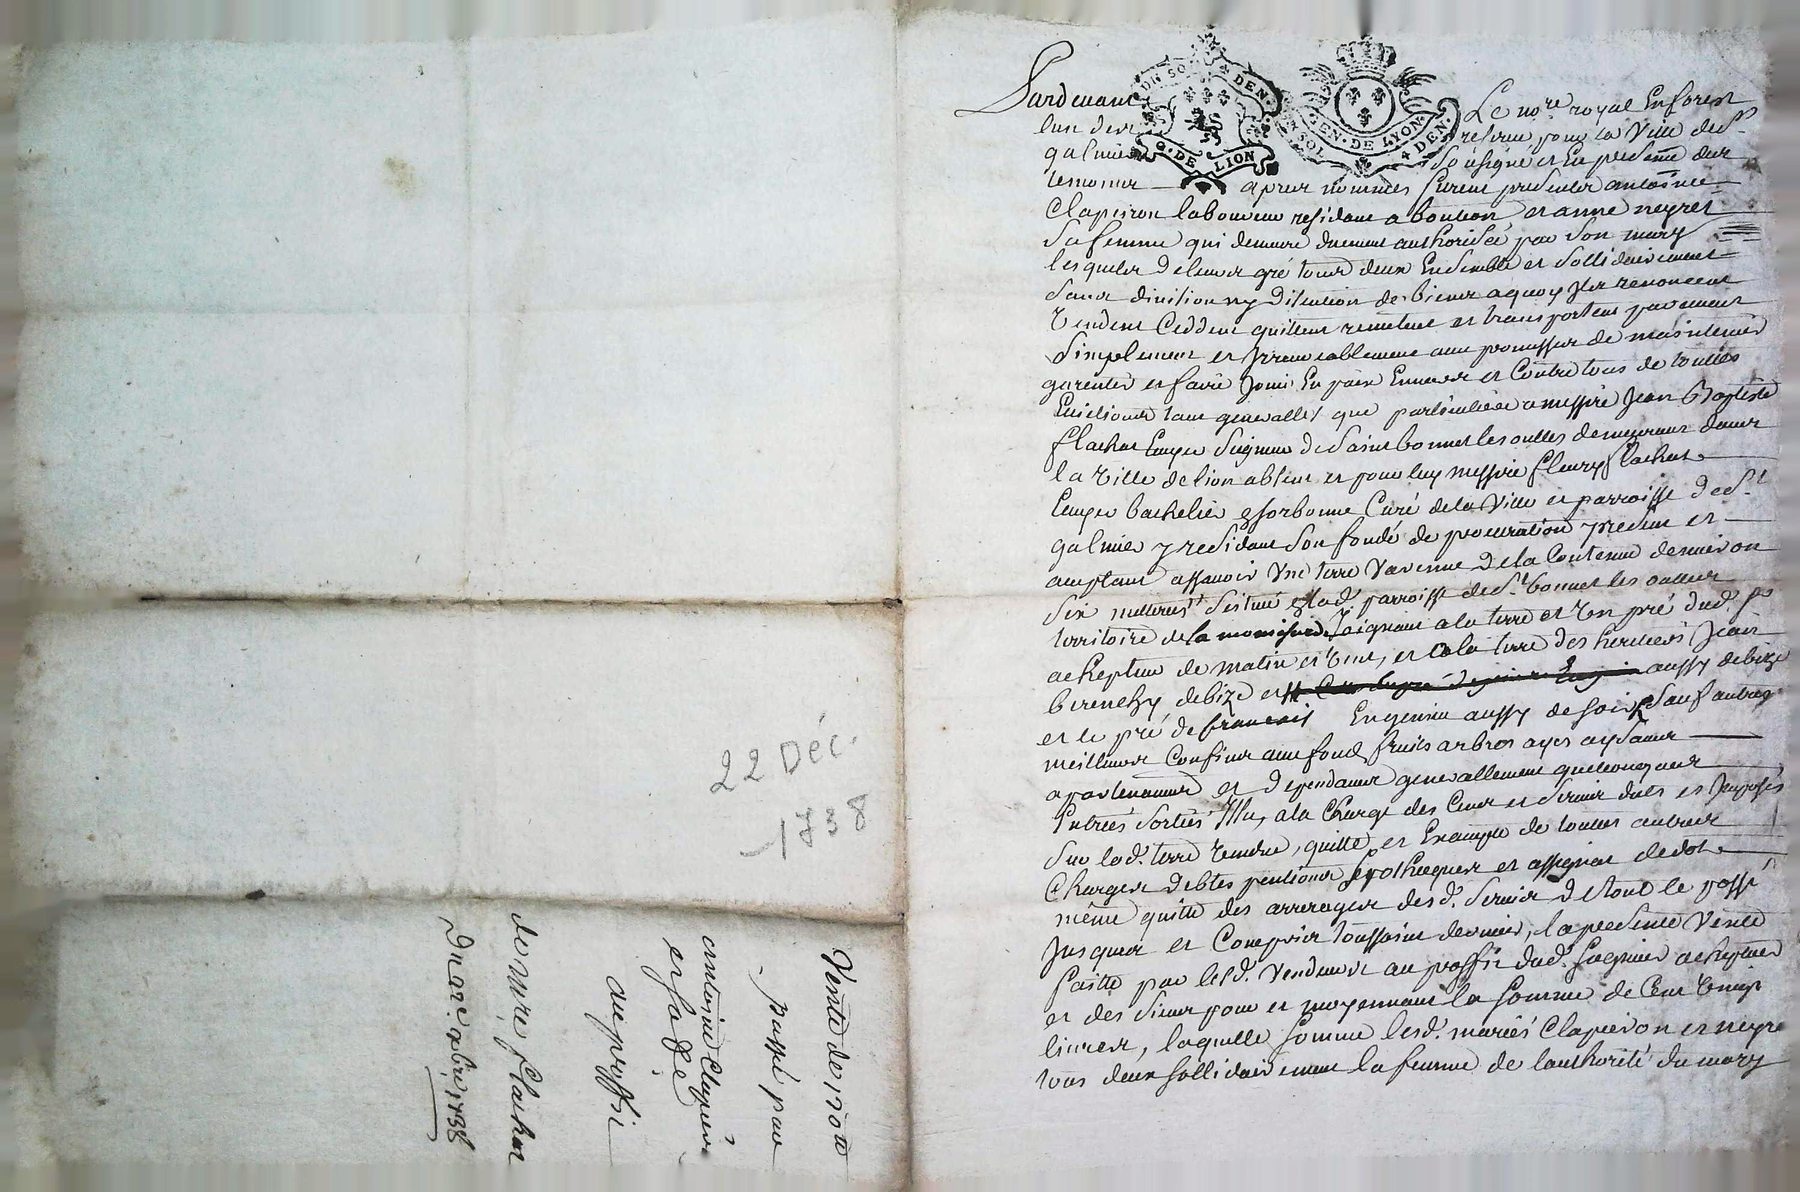 22 Déc.
1738
Vente de 120 tt
passé par
antoine Clapeiron
et sa fe
au proffit
de mire flachat
Du 22e xbre 1738
DEN
G. DE LION
GEN. DE LYON
4 DEN.
Pardevant Le nore royal En forest
resérvé pour la Ville de St
galmier soussigné et En presence des
temoins apres nommés furent presentes antoine
Clapeiron laboureur residant a bouteon et anne neyret
sa femme qui demeure duement authorisée par son mary
lesquels de leurs gré tous deux Ensemble et sollidairement
sans division ny discution de biens a quoy Ils renoncent
Vendent Ceddent quittent remettent et transportent purement
simplement et Irrevocablement avec promesse de maintenir
garentir et faire Jouir En paix Envers et Contre tous de touttes
Evictions tant generalles que particulieres a messire Jean Baptiste
flachat Ecuyer Seigneur de Saint bonnet les oulles demeurant dans
la Ville de lion absent et pour luy messire fleury flachat
Ecuyer bachelier de sorbonne Curé de la Ville et parroisse de St
galmier y residant son fondé de procuration present et
acceptant assavoir Une terre Varenne de la Contenue d'environ
six metterées scituée En lad. parroisse de St bonnet les oulles
territoire de la Joignant a la terre et Un pré dud. sr
achepteur de matin et Vent, et a la terre des heritiers Jean
berenchy de bize et aussy de bize
et le pré de francois Engenin aussy de soir, Sauf autres
meilleurs Confins avec fond fruits arbres ayes aysances
apartenances et dependances generallement quelconques
Entrées sorties Issu, a la Charge des Cens et servis dubs et Imposés
sur lad. terre Vendue, quitte et Exempte de touttes autres
Charges debtes pentions hypotheques et assignat de dot
même quitte des arrerages desd. servis de tout le passé
Jusques et Compris toussaint dernier, la presente Vente
faitte par lesd. Vendeurs au proffit dud. seigneur achepteur
et des siens pour et moyennant la somme de Cent Vingt
livres, laquelle somme lesd. mariés Clapeiron et neyret
tous deux sollidairement la femme de l'authorité du mary